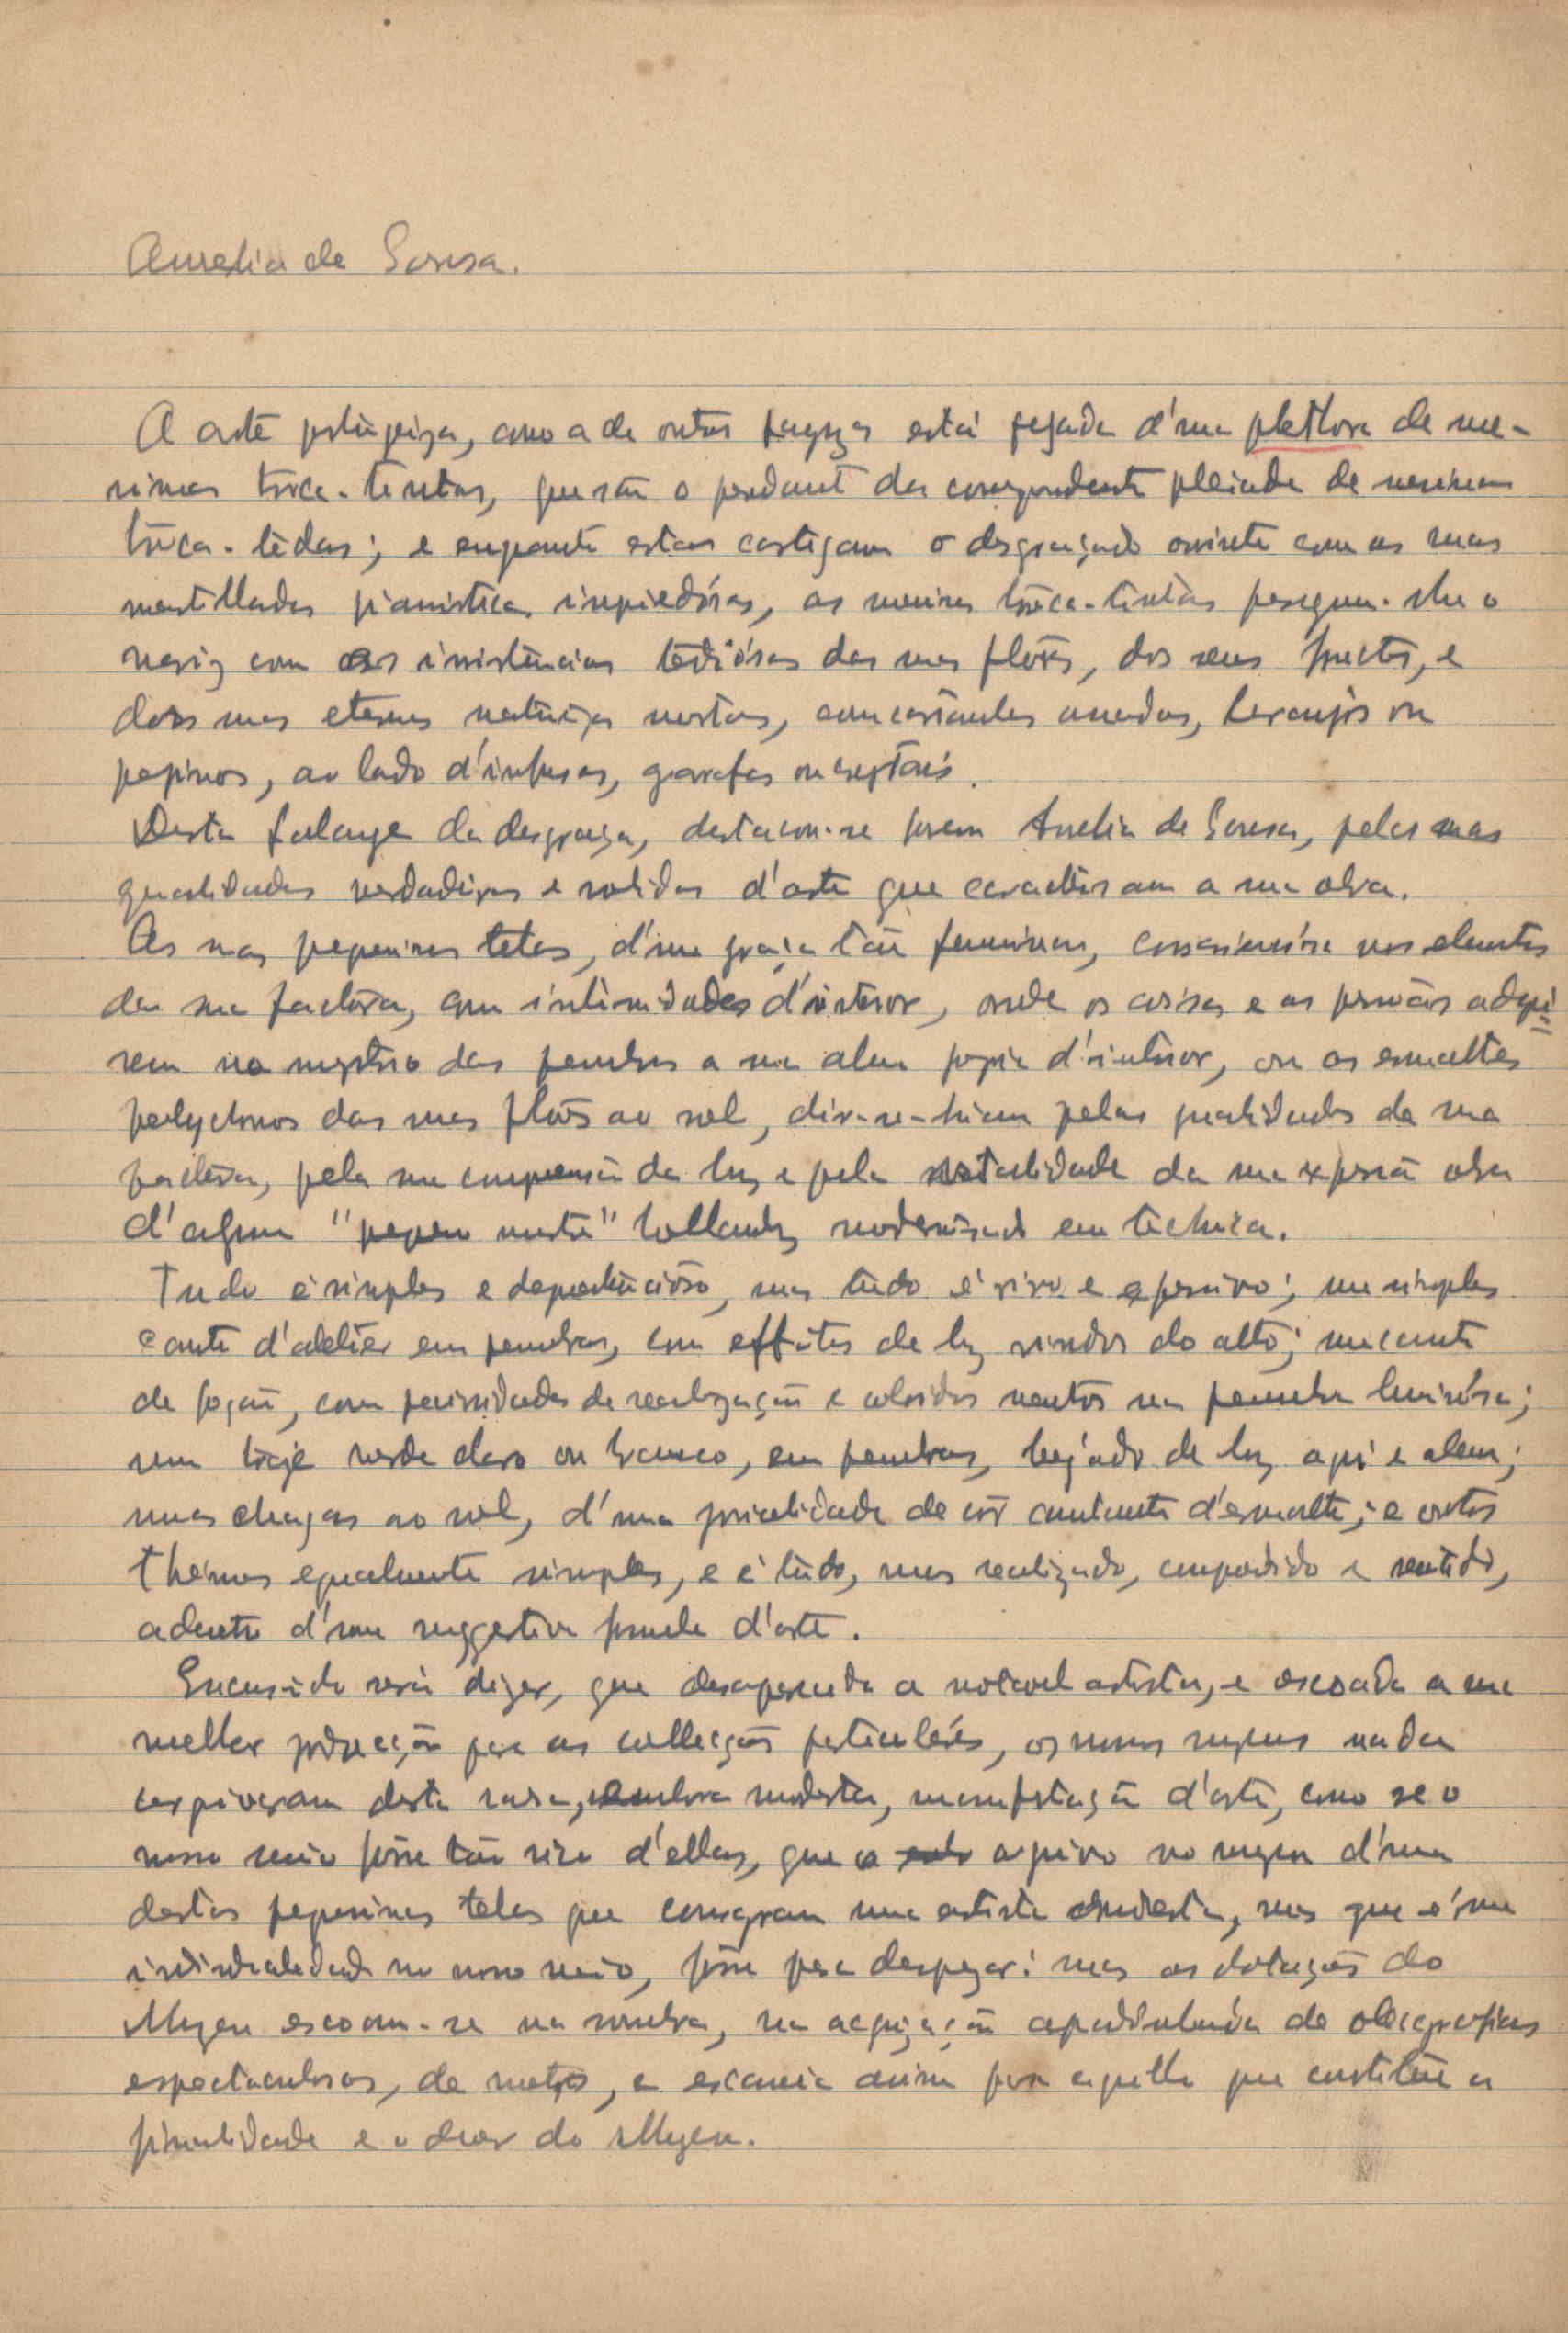 Aurelia de Sousa.
A arte portugueza, como a de outros payzes está pejada d'uma plethora de me-
ninas troca-tintas, que são o pendant da correspondente pleiade de meninas
troca-teclas; e emquanto estas castigam o desgraçado ouvinte com as suas
martelladas pianisticas impiedósas, as meninas troca-tintas perseguem-lhe o
nariz com as insistencias tediósas das suas flôres, dos seus fructos, e
das suas eternas naturezas mortas, com cebolas, laranjas ou
pepinos, ao lado d'infusas, garrafas ou crystaes.
Desta falange da desgraça, destacou-se porem Aurelia de Sousa, pelas suas
qualidades verdadeiras e solidas d'arte que caracterisam a sua obra.
As suas pequeninas telas, d'uma graça tão feminina, conscienciósa nos elementos
da sua factura, com intimidades d'interior, onde as coisas e as pessoas adqui-
rem no mysterio das penumbras a sua alma propria d'interior, ou os esmaltes
polychromos das suas flôres ao sol, dir-se-hiam pelas qualidades da sua
factura, pela sua comprehensão da luz e pela da sua expressão obra
d'algum "pequeno mestre" hollandez modernisado em technica.
Tudo é simples e despretencioso, mas tudo é vivo e expressivo; um simples
canto d'atelier em penumbra, com effeitos de luz vindos do alto; um canto
de fogão, com de realização e coloridos neutros na penumbra luminósa;
um traje verde claro ou branco, em penumbra, beijado de luz aqui e alem;
umas chagas ao sol, d'uma de côr cantante d'esmalte; e outros
themas egualmente simples, e é tudo, mas realizado, comprehendido e sentido,
adentro d'uma suggestiva formula d'arte.
Escusado será dizer, que desaparecida a notavel artista, e escoada a sua
melhor producção para as collecções particuláres, os nossos museus nada
adquiriram desta rara, embora modesta, manifestação d'arte, como se o
nosso meio fôsse tão rico d'ellas, que a acquisição no museu d'uma
destas pequeninas telas que consagram uma artista modesta, mas que é uma
individualidade no nosso meio, fôsse para desprezar: mas as dotações do
Muzeu escoam-se na sombra, na acquisição de oleographias
espectaculosas, de metros, e escaceia assim para aquillo que constitue a
finalidade e o dever do Muzeu.